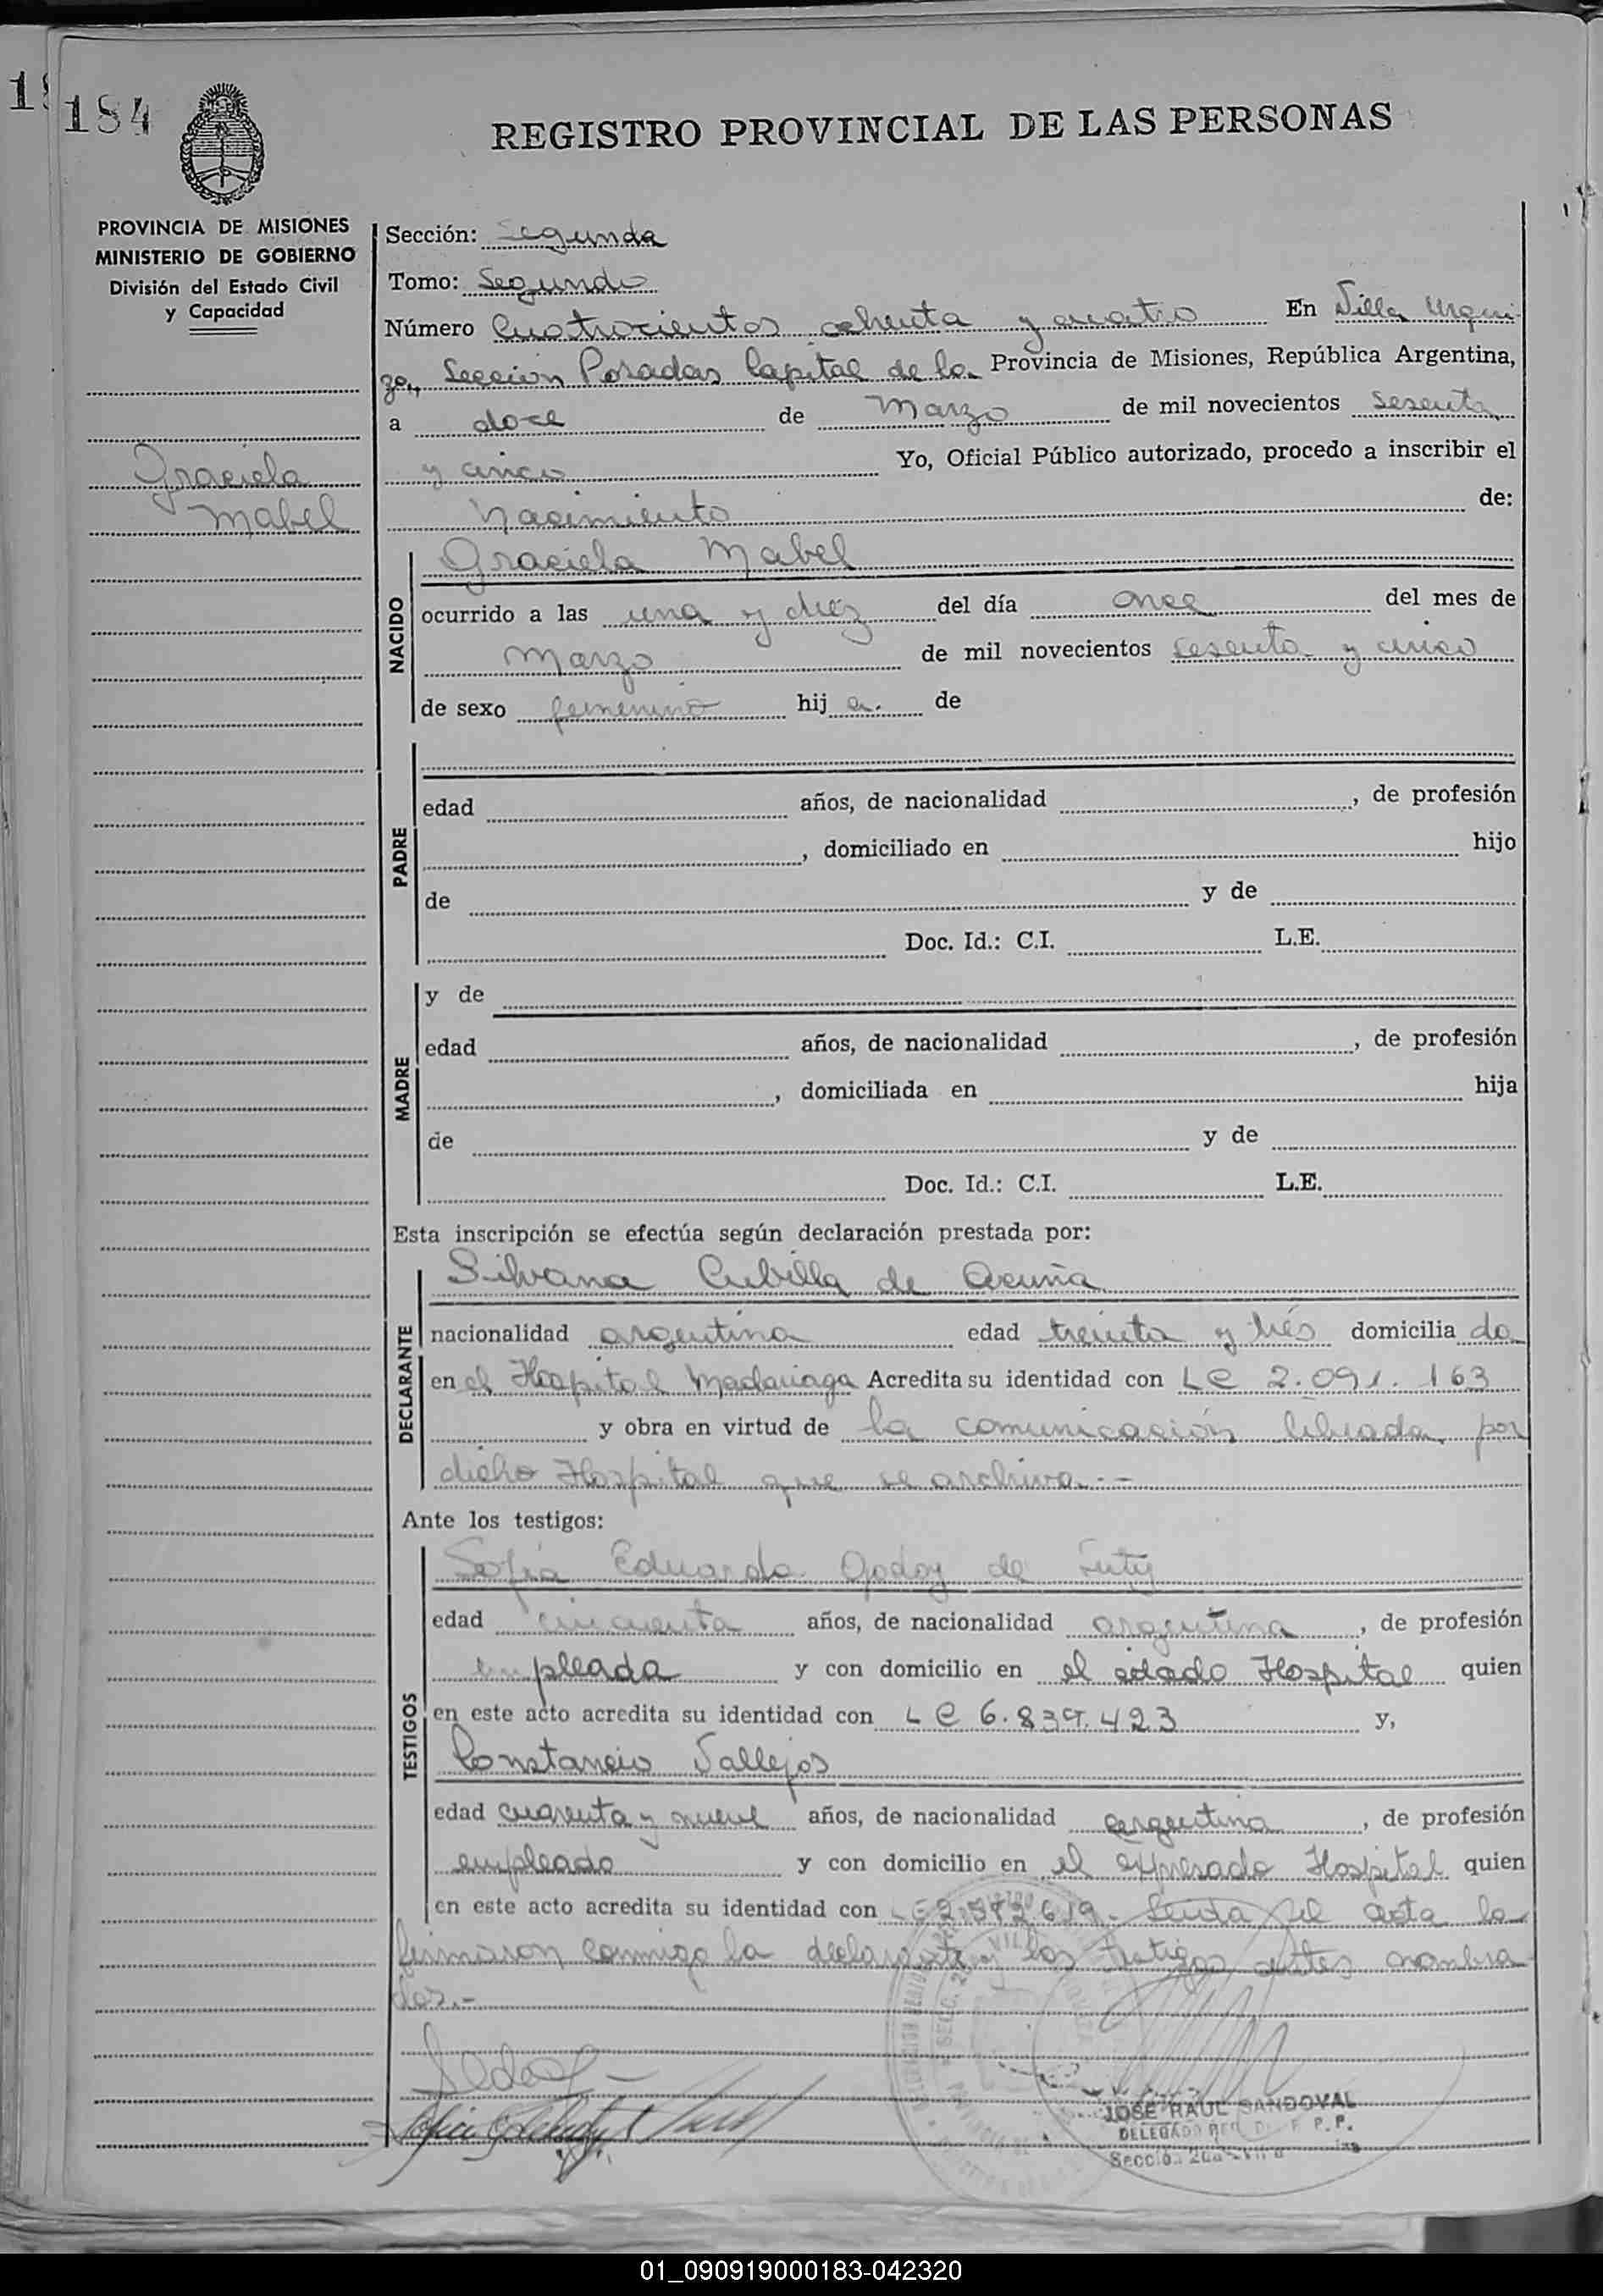 184
REGISTRO PROVINCIAL DE LAS PERSONAS
PROVINCIA DE MISIONES
MINISTERIO DE GOBIERNO
División del Estado Civil
y Capacidad
Graciela
Mabel
Sección: Segunda
Tomo: Segundo
Número Cuatrocientos ochenta y cuatro En Villa Urqui-
za, Sección Posadas Capital de la Provincia de Misiones, República Argentina,
a doce de Marzo de mil novecientos sesenta
y cinco Yo, Oficial Público autorizado, procedo a inscribir el
Nacimiento de:
NACIDO
Graciela Mabel
ocurrido a las una y diez del día once del mes de
Marzo de mil novecientos sesenta y cinco
de sexo femenino hij a. de
PADRE
edad años, de nacionalidad , de profesión
, domiciliado en hijo
de y de
Doc. Id.: C.I. L.E.
MADRE
y de
edad años, de nacionalidad , de profesión
, domiciliada en hija
de y de
Doc. Id.: C.I. L.E.
Esta inscripción se efectúa según declaración prestada por:
DECLARANTE
Silvana Cubilla de Acuña
nacionalidad argentina edad treinta y trés domicilia da
en el Hospital Madariaga Acredita su identidad con LC 2.091.163
y obra en virtud de la comunicación librada por
dicho Hospital que se archiva.-
Ante los testigos:
TESTIGOS
Sofia Eduarda Godoy de
edad cincuenta años, de nacionalidad argentina, de profesión
empleada y con domicilio en el citado Hospital quien
en este acto acredita su identidad con LC 6.839.423 y,
Constancio Vallejos
edad cuarenta y nueve años, de nacionalidad argentina, de profesión
empleado y con domicilio en el expresado Hospital quien
en este acto acredita su identidad con Leida el acta la
firmaron conmigo la declarante y los testigos antes nombra
dos.-
JOSE RAUL SANDOVAL
DELEGADO
Sección 2da
01_090919000183-042320